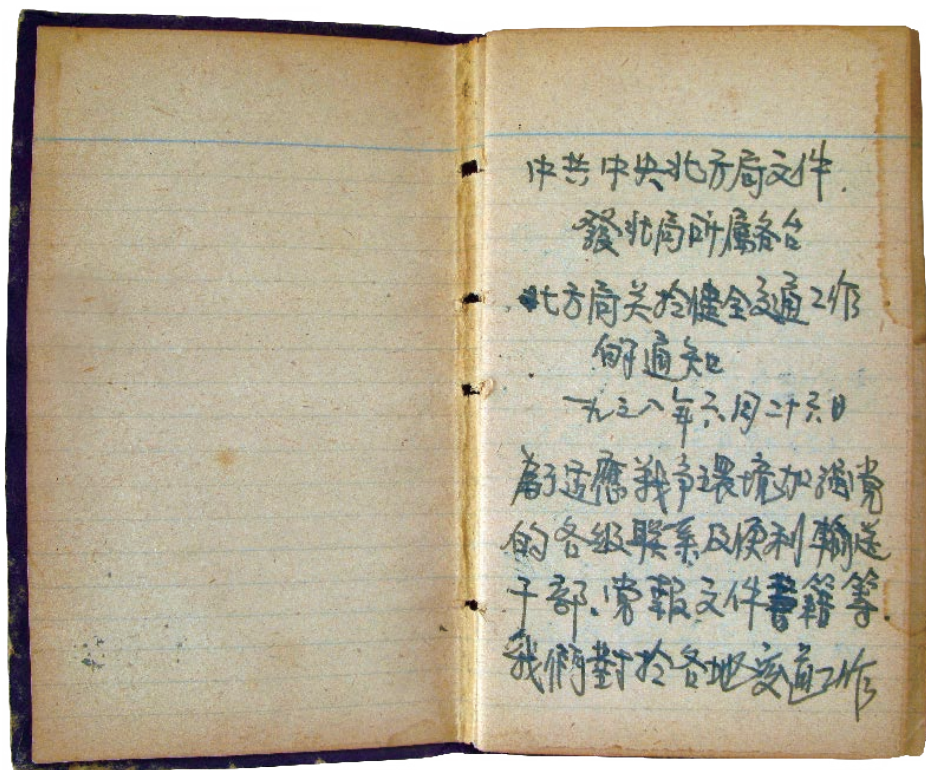 中共中央北方局文件.
發北局所屬各台
北方局关於健全交通工作
的通知
一九三八年六月二十六日
為了适應戰爭環境加强党
的各级联系及便利輸送
干部、党報文件書籍等.
我們對於各地交通工作